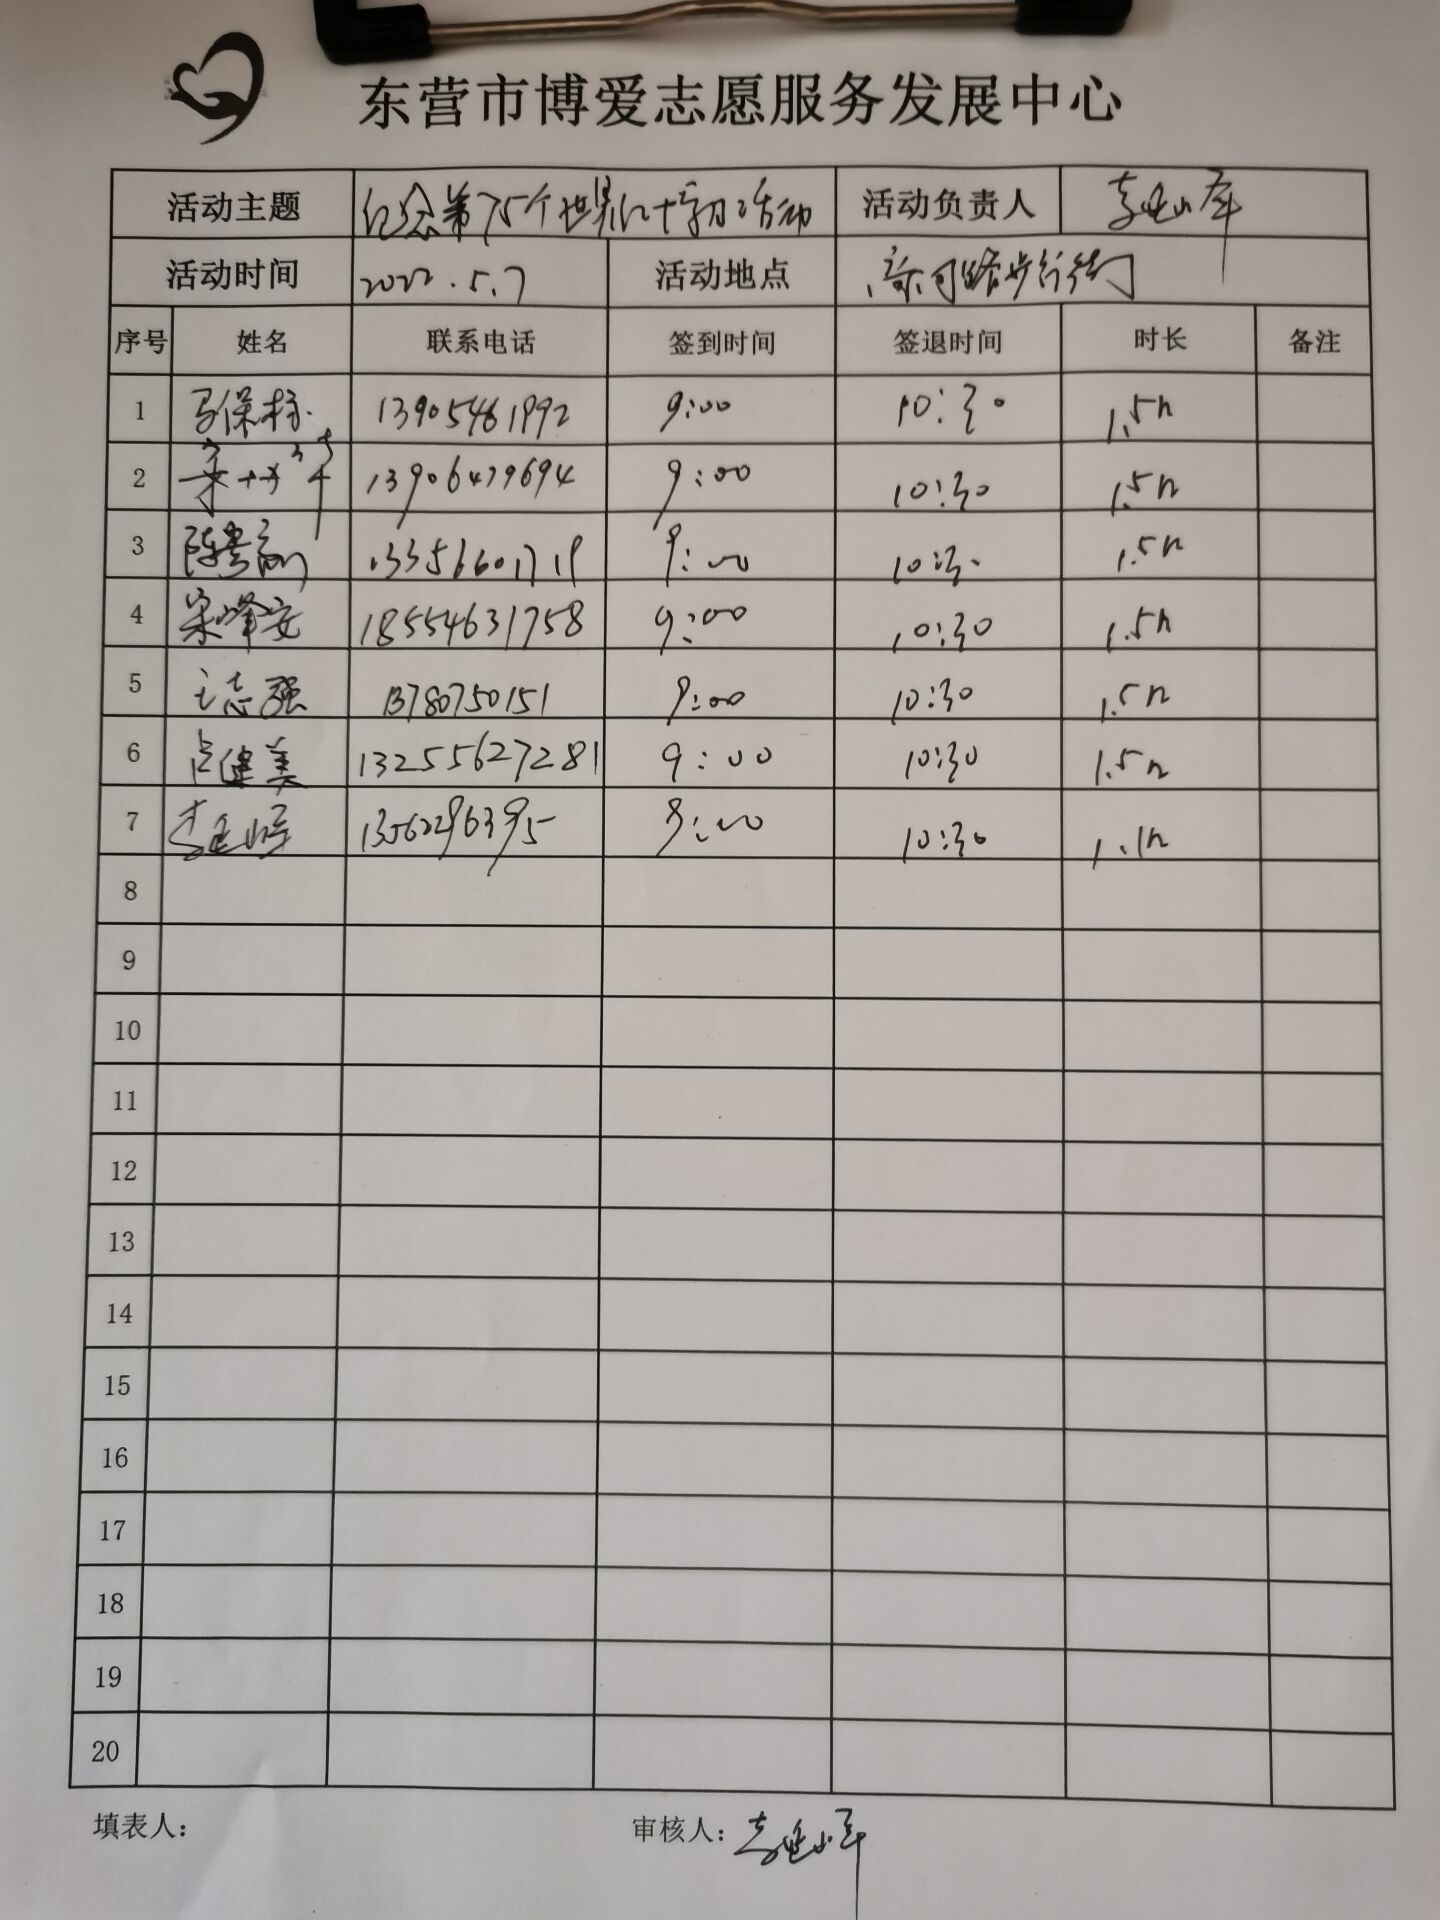 东营市博爱志愿服务发展中心
活动主题 纪念第75个世界红十字日活动 活动负责人
活动时间 2022.5.7 活动地点 步行街
序号 姓名 联系电话 签到时间 签退时间 时长 备注
1 马保标 13905461992 9:00 10:30 1.5h
2 13906479694 9:00 10:30 1.5h
3 陈贵 13356601719 9:00 10:30 1.5h
4 宋峰安 18554631758 9:00 10:30 1.5h
5 王志强 13780750151 9:00 10:30 1.5h
6 卢健美 13255627281 9:00 10:30 1.5h
7 13562296395 9:00 10:30
8
9
10
11
12
13
14
15
16
17
18
19
20
填表人： 审核人：